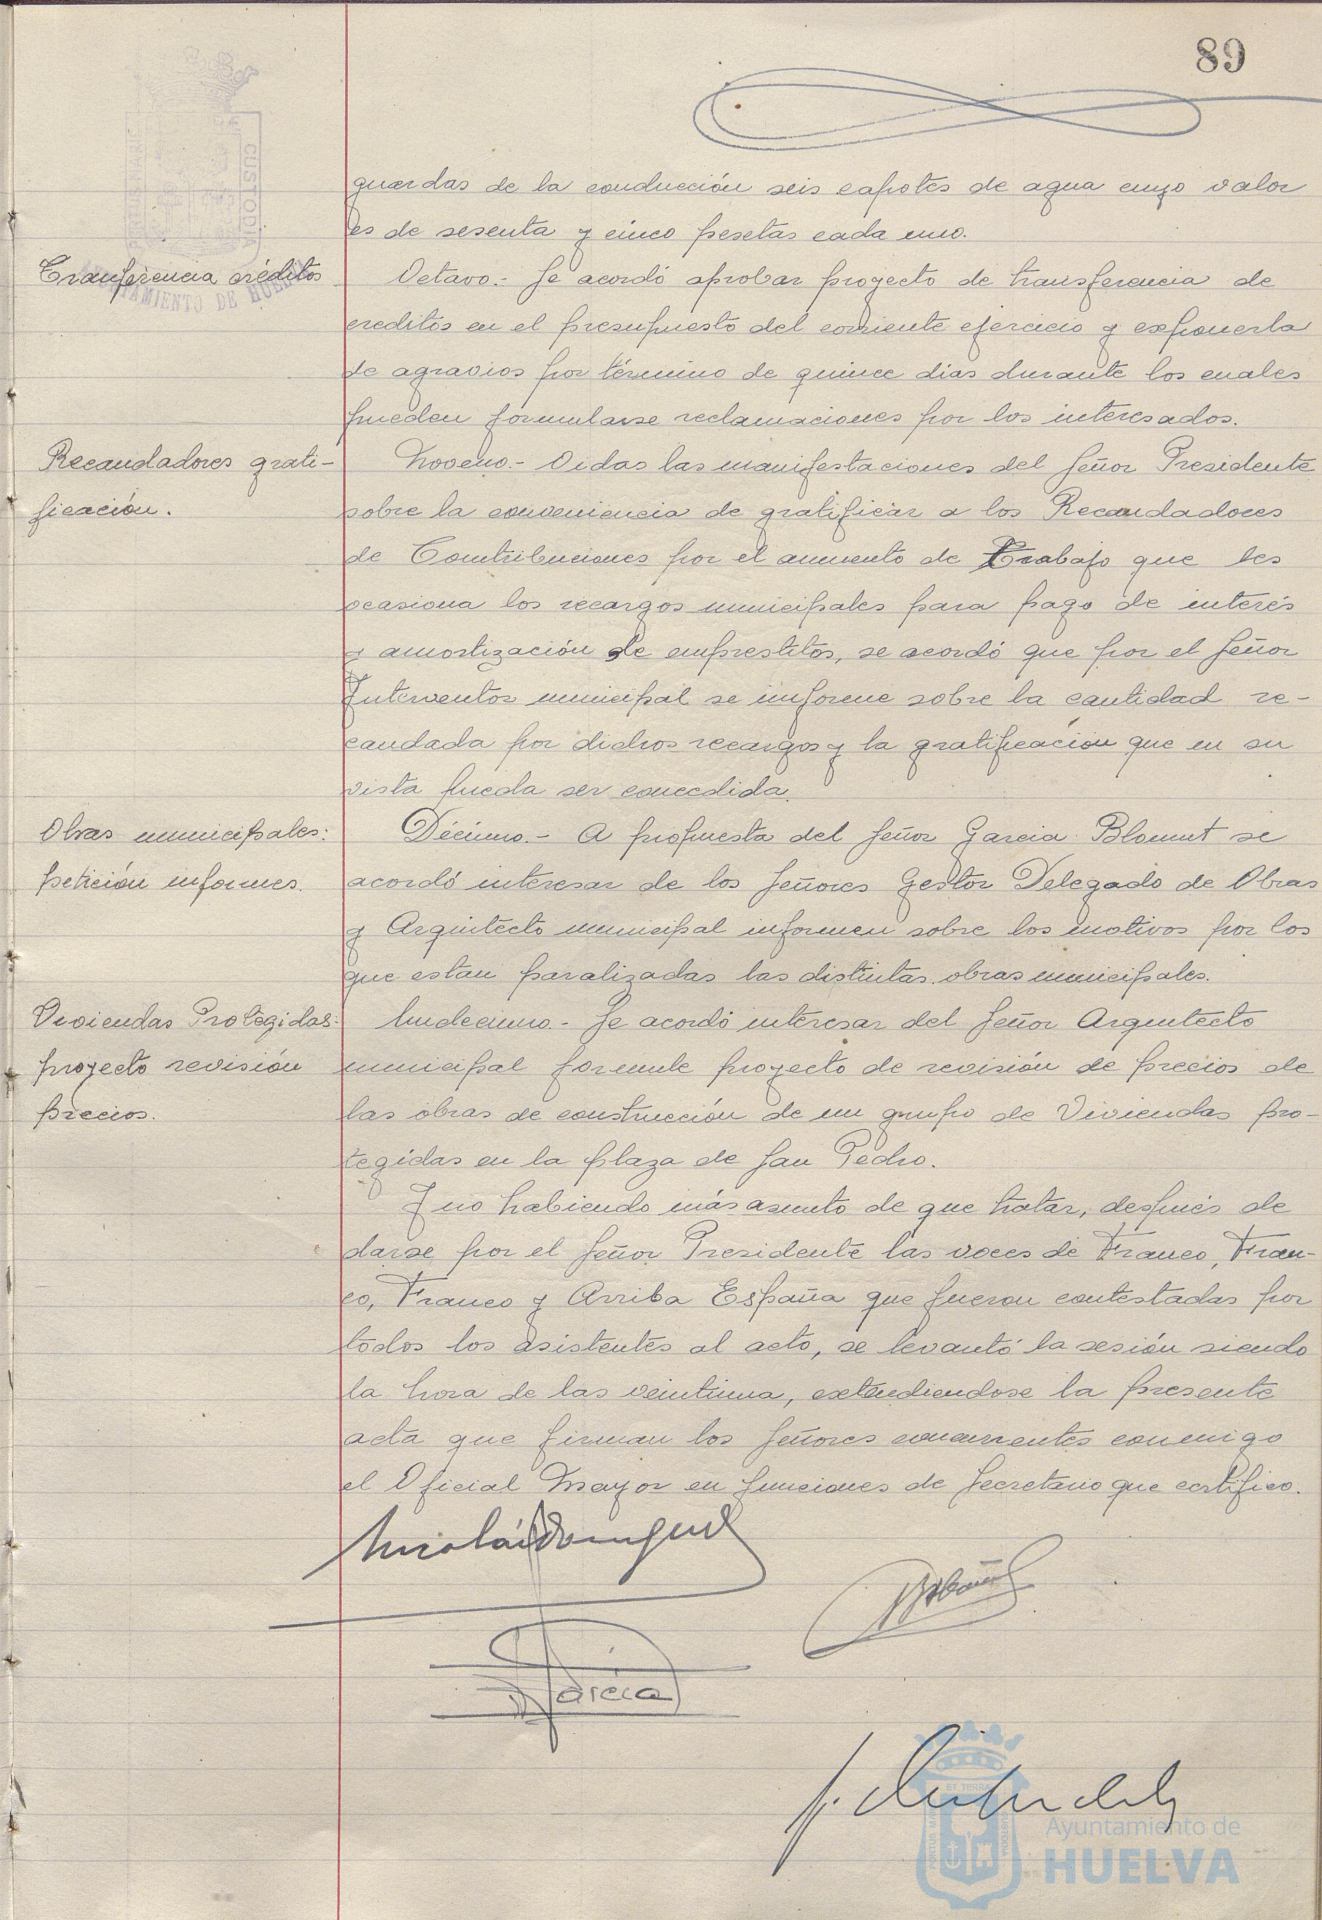 89
guardas de la conducción seis capotes de agua cuyo valor
es de sesenta y cinco pesetas cada uno.
Tranferencia créditos
Octavo.- Se acordó aprobar proyecto de transferencia de
creditos en el presupuesto del corriente ejercicio y exponerla
de agravios por término de quince dias durante los cuales
pueden formularse reclamaciones por los interesados.
Recaudadores grati-
ficación.
Noveno.- Oidas las manifestaciones del Señor Presidente
sobre la conveniencia de gratificar a los Recaudadores
de Contribuciones por el aumento de Trabajo que les
ocasiona los recargos municipales para pago de interés
y amortización de emprestitos, se acordó que por el Señor
Interventor municipal se informe sobre la cantidad re-
caudada por dichos recargos y la gratificación que en su
vista pueda ser concedida.
Obras municipales:
petición informes.
Décimo.- A propuesta del Señor Garcia Blomut se
acordó interesar de los Señores Gestor Delegado de Obras
y Arquitecto municipal informen sobre los motivos por los
que estan paralizadas las distintas obras municipales.
Viviendas Protegidas:
proyecto revisión
precios.
Undecimo.- Se acordó interesar del Señor Arquitecto
municipal formule proyecto de revisión de precios de
las obras de construcción de un grupo de Viviendas pro-
tegidas en la plaza de San Pedro.
Y no habiendo más asunto de que tratar, después de
darse por el Señor Presidente las voces de Franco, Fran-
co, Franco y Arriba España que fueron contestadas por
todos los asistentes al acto, se levantó la sesión siendo
la hora de las veintiuna, extendiendose la presente
acta que firman los Señores concurrentes conmigo
el Oficial Mayor en funciones de Secretario que certifico.
Nicolás Dominguez
Garcia
Ayuntamiento de
HUELVA